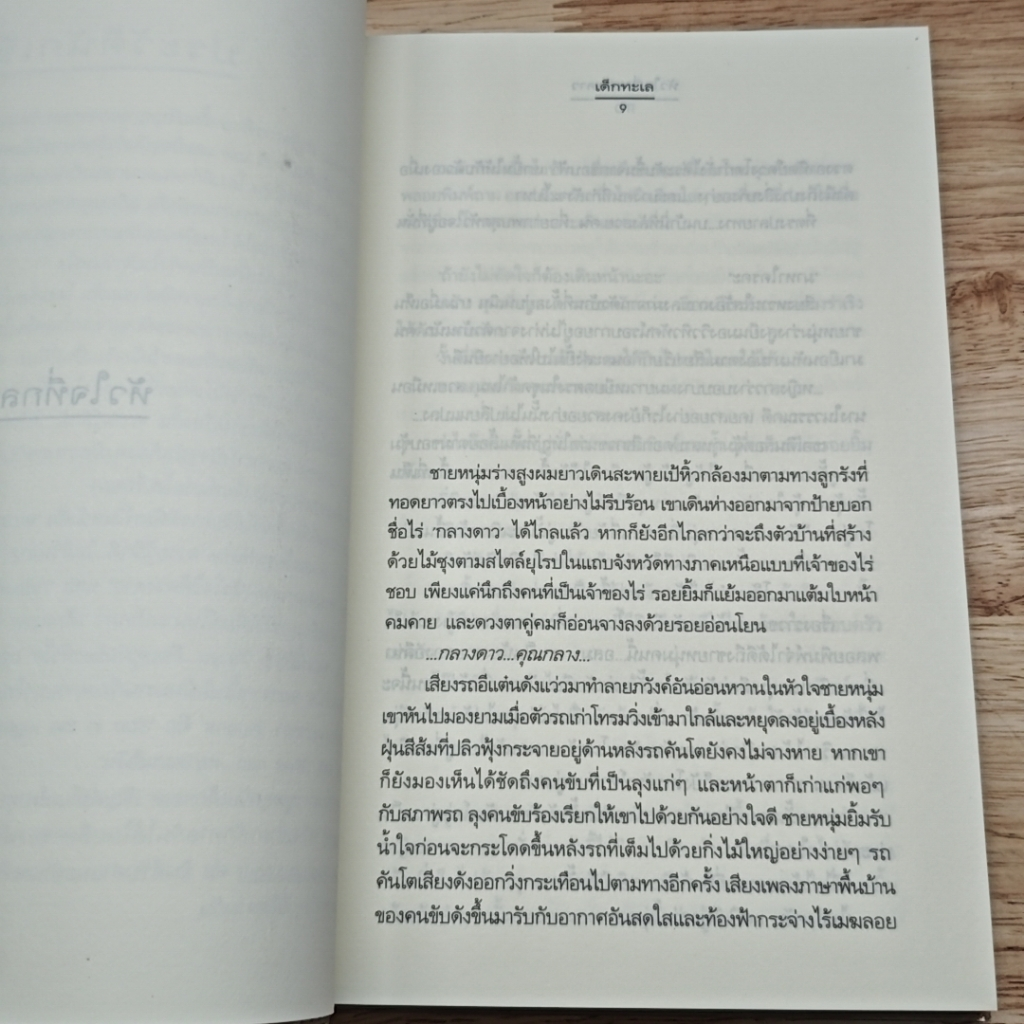 เด็กทะเล
9
ชายหนุ่มร่างสูงผมยาวเดินสะพายเป้หิ้วกล้องมาตามทางลูกรังที่
ทอดยาวตรงไปเบื้องหน้าอย่างไม่รีบร้อน เขาเดินห่างออกมาจากป้ายบอก
ชื่อไร่ 'กลางดาว' ได้ไกลแล้ว หากก็ยังอีกไกลกว่าจะถึงตัวบ้านที่สร้าง
ด้วยไม้ซุงตามสไตล์ยุโรปในแถบจังหวัดทางภาคเหนือแบบที่เจ้าของไร่
ชอบ เพียงแค่นึกถึงคนที่เป็นเจ้าของไร่ รอยยิ้มก็แย้มออกมาแต้มใบหน้า
คมคาย และดวงตาคู่คมก็อ่อนจางลงด้วยรอยอ่อนโยน
...กลางดาว...คุณกลาง...
เสียงรถอีแต๋นดังแว่วมาทำลายภวังค์อันอ่อนหวานในหัวใจชายหนุ่ม
เขาหันไปมองยามเมื่อตัวรถเก่าโทรมวิ่งเข้ามาใกล้และหยุดลงอยู่เบื้องหลัง
ฝุ่นสีส้มที่ปลิวฟุ้งกระจายอยู่ด้านหลังรถคันโตยังคงไม่จางหาย หากเขา
ก็ยังมองเห็นได้ชัดถึงคนขับที่เป็นลุงแก่ๆ และหน้าตาก็เก่าแก่พอๆ
กับสภาพรถ ลุงคนขับร้องเรียกให้เขาไปด้วยกันอย่างใจดี ชายหนุ่มยิ้มรับ
น้ำใจก่อนจะกระโดดขึ้นหลังรถที่เต็มไปด้วยกิ่งไม้ใหญ่อย่างง่ายๆ รถ
คันโตเสียงดังออกวิ่งกระเทือนไปตามทางอีกครั้ง เสียงเพลงภาษาพื้นบ้าน
ของคนขับดังขึ้นมารับกับอากาศอันสดใสและท้องฟ้ากระจ่างไร้เมฆลอย